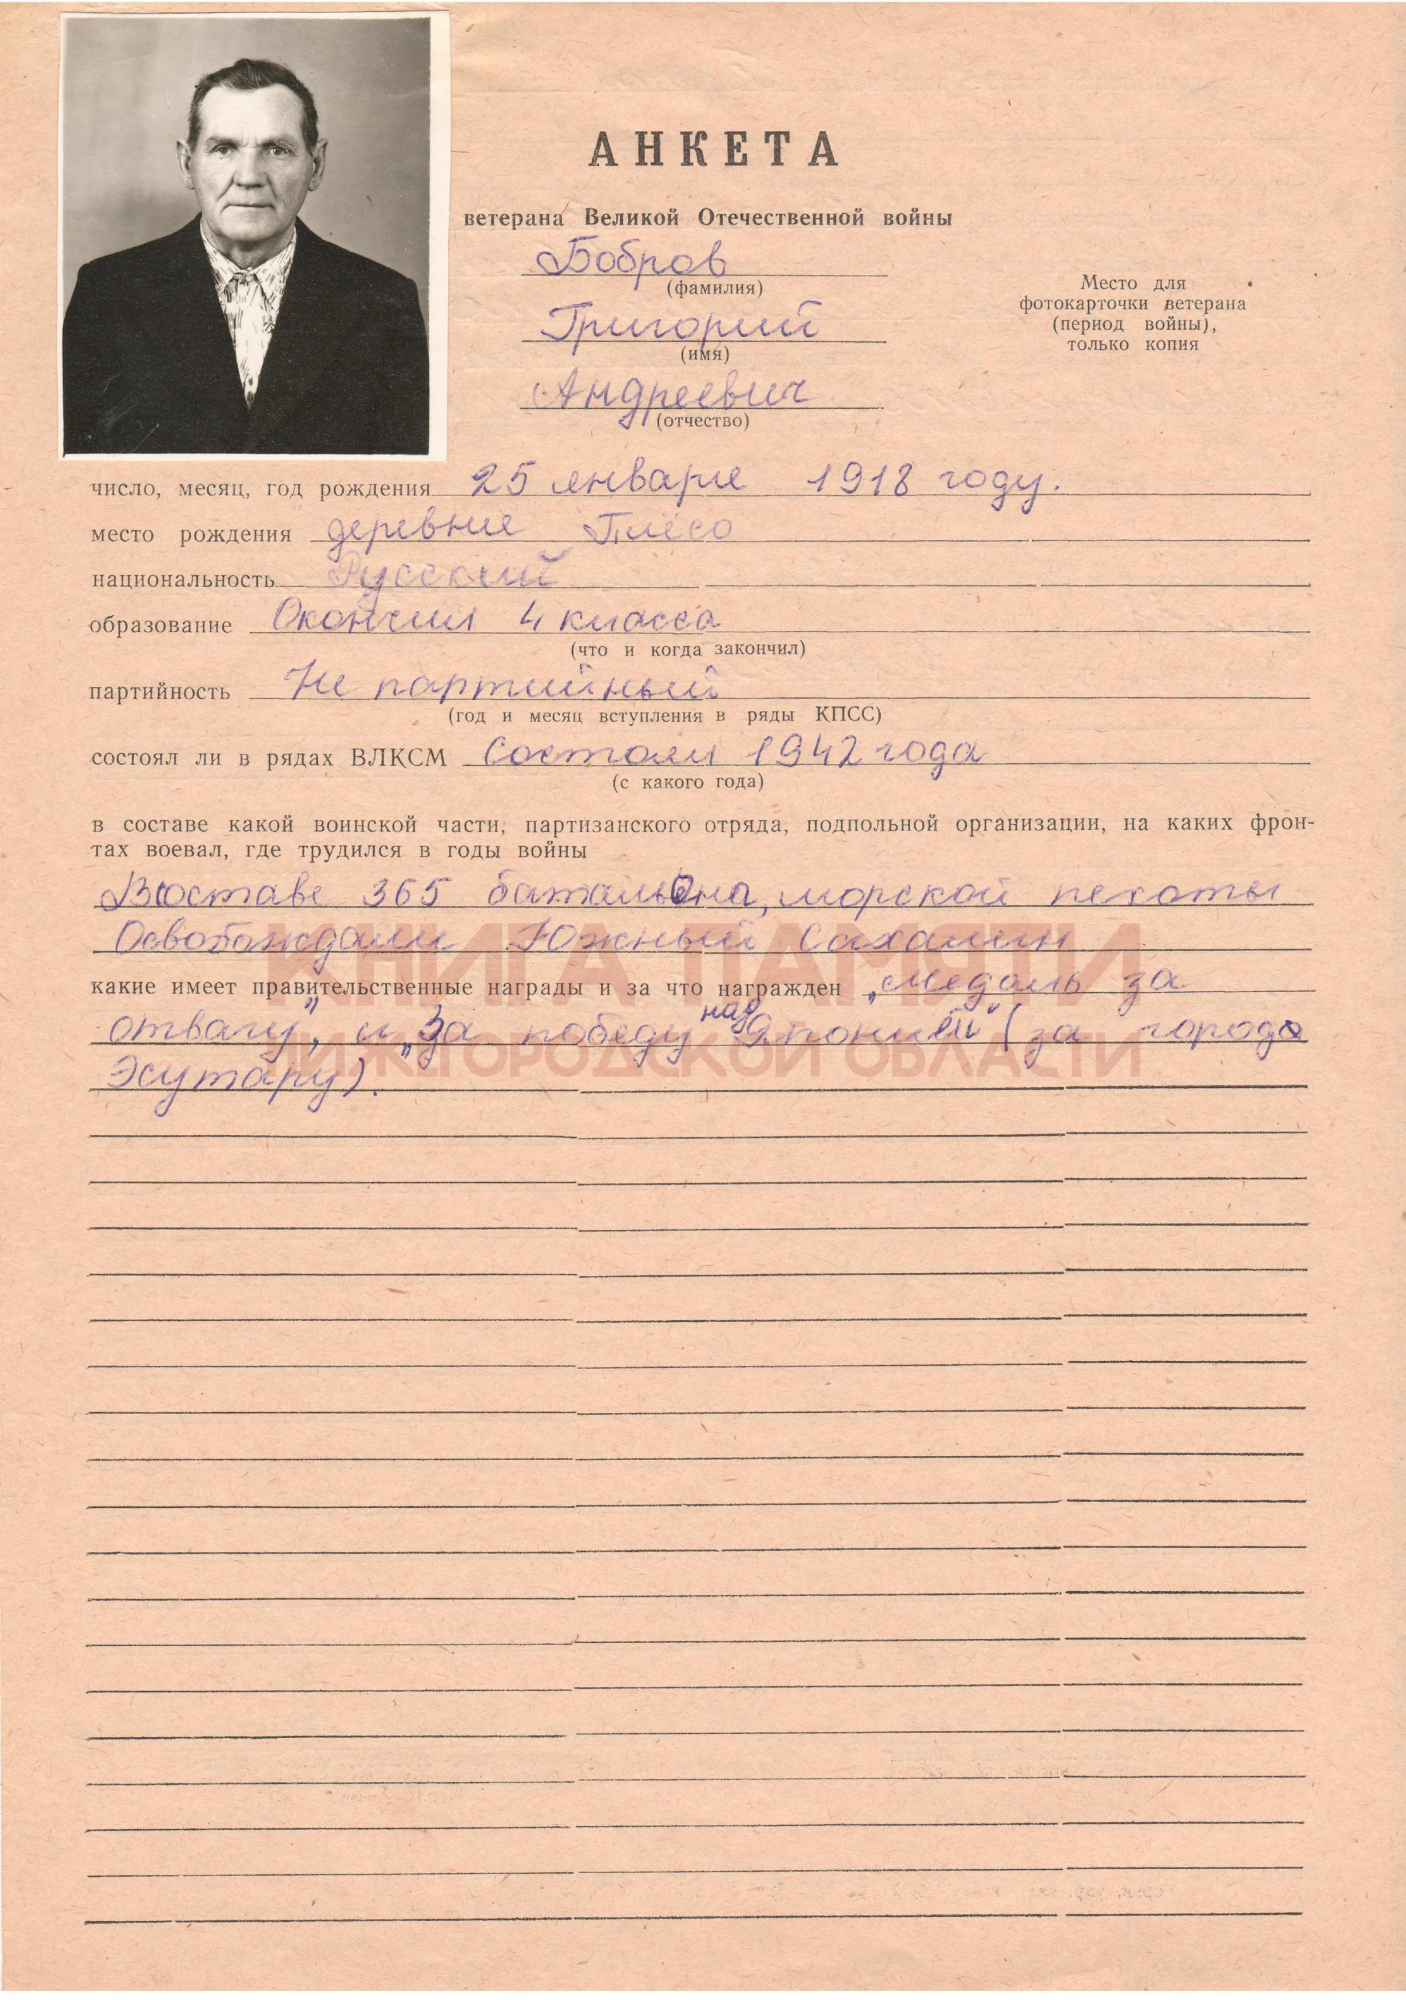 АНКЕТА
ветерана Великой Отечественной войны
Бобров
(фамилия)
Григорий
(имя)
Андреевич
(отчество)
Место для
фотокарточки ветерана
(период войны),
только копия
число, месяц, год рождения 25 января 1918 году.
место рождения деревня Плёсо
национальность Русский
образование Окончил 4 класса
(что и когда закончил)
партийность Не партийный
(год и месяц вступления в ряды КПСС)
состоял ли в рядах ВЛКСМ Состоял 1942 года
(с какого года)
в составе какой воинской части, партизанского отряда, подпольной организации, на каких фрон-
тах воевал, где трудился в годы войны
В составе 365 батальона, морской пехоты
Освобождали Южный Сахалин
какие имеет правительственные награды и за что награжден „Медаль за
отвагу", и „За победу над Японией" (за города
Эсутару).
КНИГА ПАМЯТИ
НИЖГОРОДСКОЙ ОБЛАСТИ